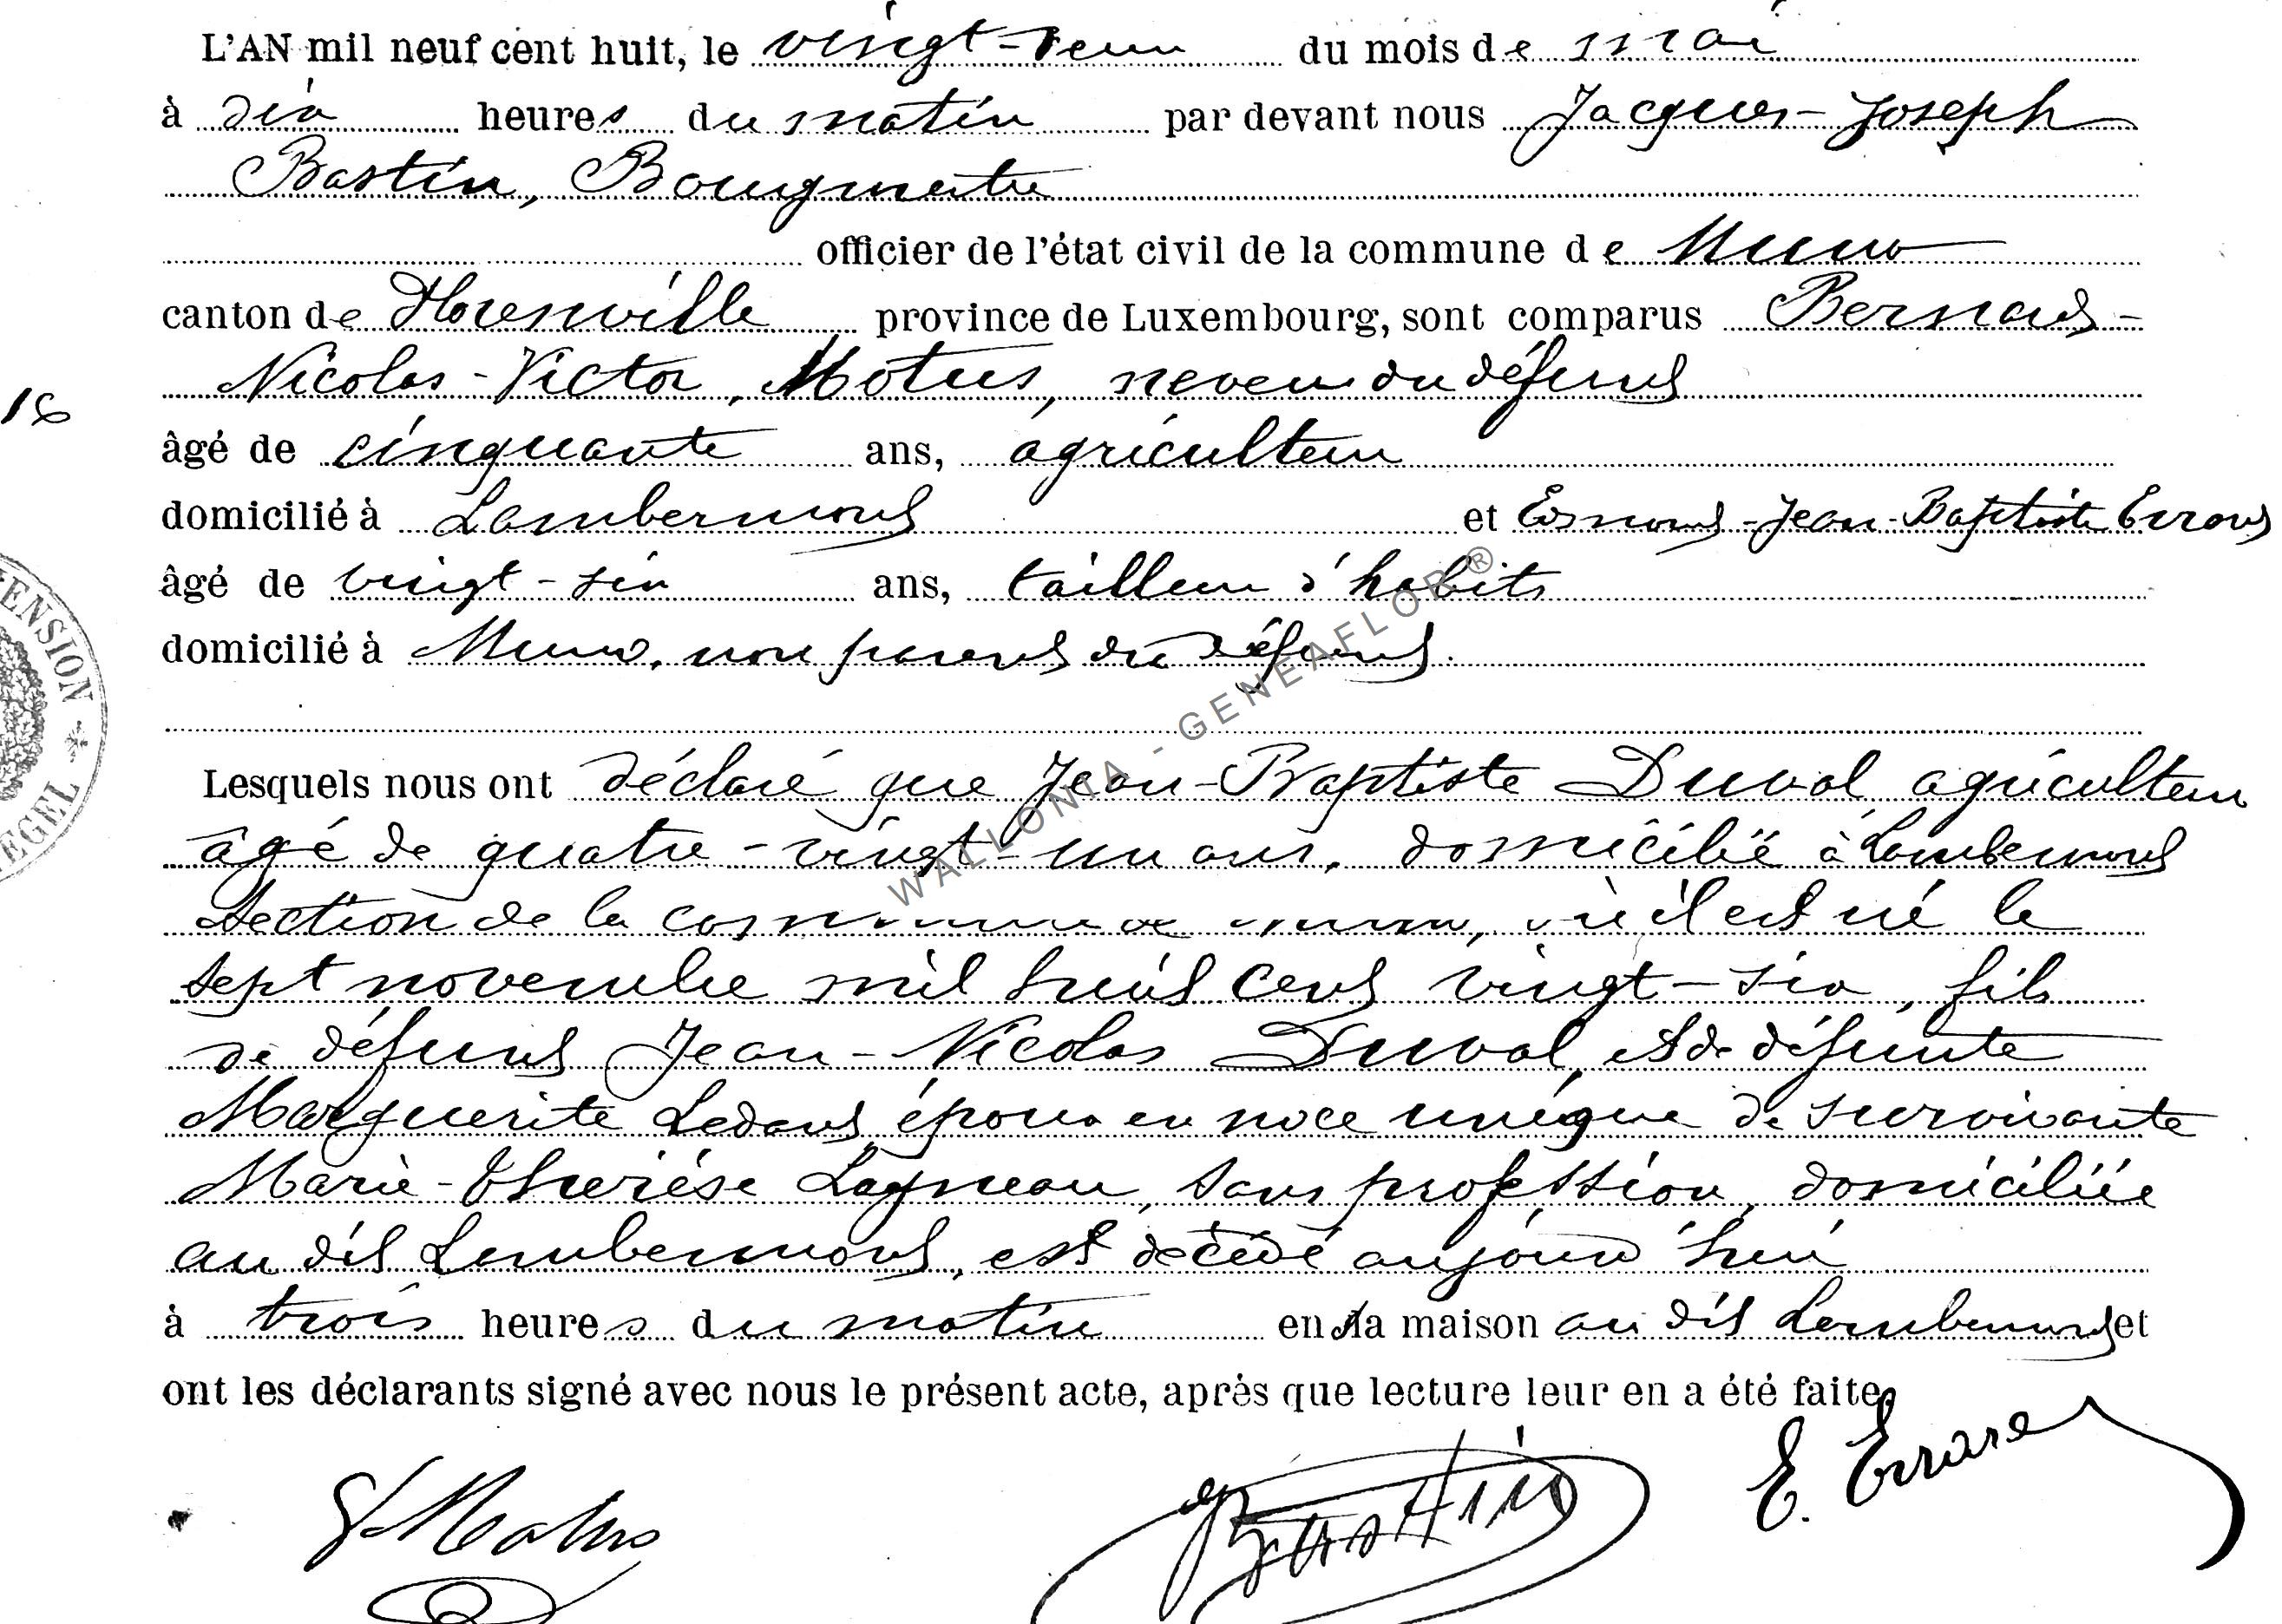 L'AN mil neuf cent huit, le vingt-deux du mois de mai
à dix heures du matin par devant nous Jacques-Joseph
Bastin, Bourgmestre
officier de l'état civil de la commune de Muno
canton de Florenville province de Luxembourg, sont comparus Bernard-
Nicolas-Victor, neveu du défunt
16
âgé de cinquante ans, agriculteur
domicilié à Lambermont et Edmond-Jean-Baptiste Errard
âgé de vingt-six ans, tailleur d'habits
domicilié à Muno, non parent du défunt.
ENSION
EGEL
WALLONIA - GENEAFLOR®
Lesquels nous ont déclaré que Jean-Baptiste Duval, agriculteur
âgé de quatre-vingt-un ans, domicilié à Lambermont
section de la commune de Muno, où il est né le
sept novembre mil huit cent vingt-six, fils
de défunt Jean-Nicolas Duval, et de défunte
Marguerite Ledant, époux en noce unique de survivante
Marie-Thérèse Lagneau, sans profession, domiciliée
au dit Lambermont, est décédé aujourd'hui
à trois heures du matin en sa maison au dit Lambermont et
ont les déclarants signé avec nous le présent acte, après que lecture leur en a été faite.
Bastin E. Errard